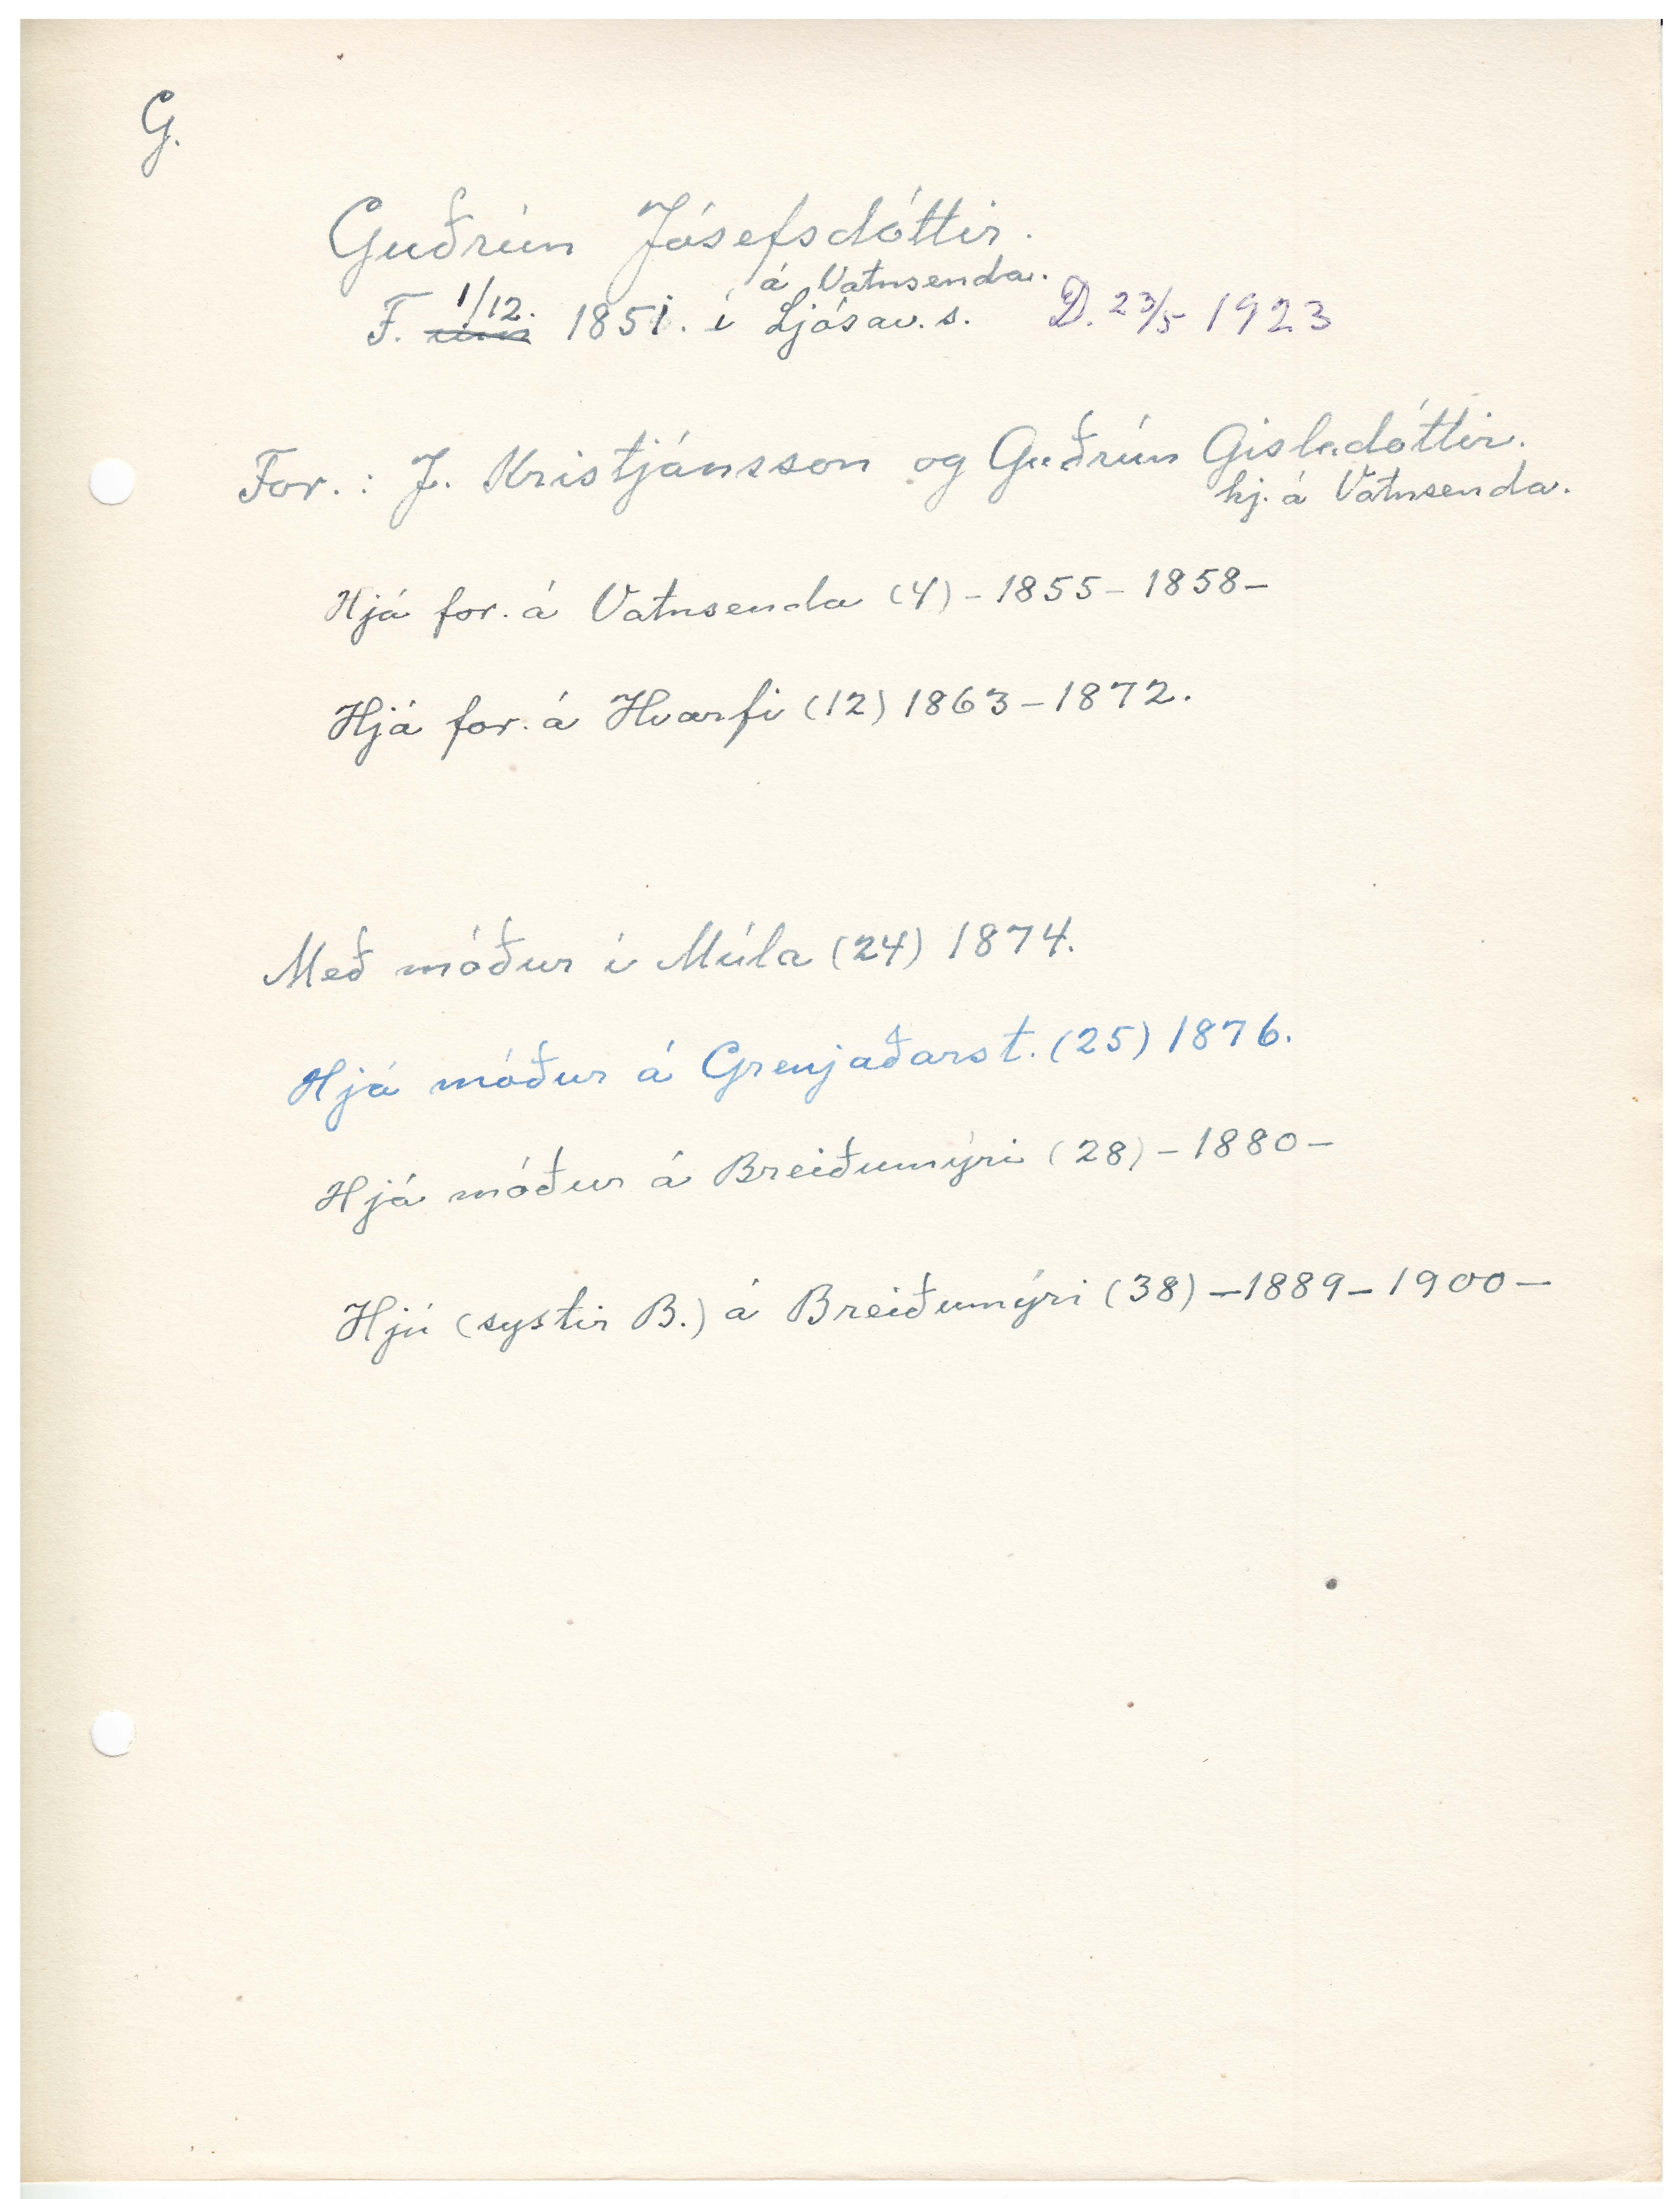 G.
Guðrún Jósefsdóttir.
á Vatnsenda.
F. 1/12. 1851. í Ljósav.s. D. 23/5 1923
For.: J. Kristjánsson og Guðrún Gisladóttir.
hj. á Vatnsenda.
Hjá for. á Vatnsenda (4) - 1855 - 1858 -
Hjá for. á Hvarfi (12) 1863 - 1872.
Með móður í Múla (24) 1874.
Hjá móður á Grenjaðarst. (25) 1876.
Hjá móður á Breiðumýri (28) - 1880 -
Hjú (systir B.) á Breiðumýri (38) - 1889 - 1900 -